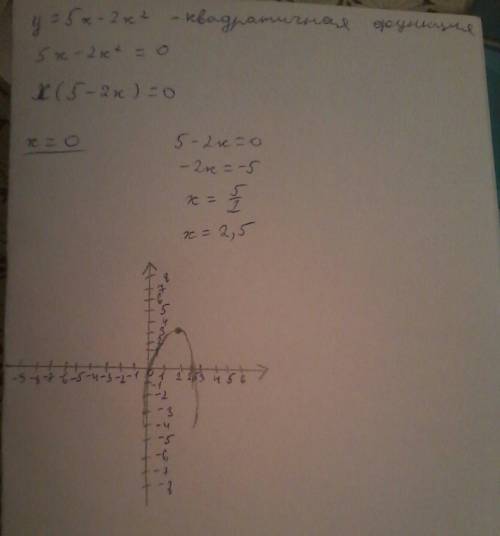 y = 5x - 2x² - квадратичная функция
5x - 2x² = 0
x(5 - 2x) = 0
x = 0
5 - 2x = 0
-2x = -5
x = 5/2
x = 2,5
8
7
6
5
4
3
2
1
-9 -8 -7 -6 -5 -4 -3 -2 -1 0 1 2 2,5 3 4 5 6
-1
-2
-3
-4
-5
-6
-7
-8